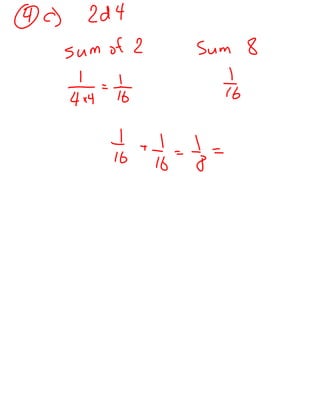 ④ c) 2d4
sum of 2 Sum 8
1/(4*4) = 1/16 1/16
1/16 + 1/16 = 1/8 =